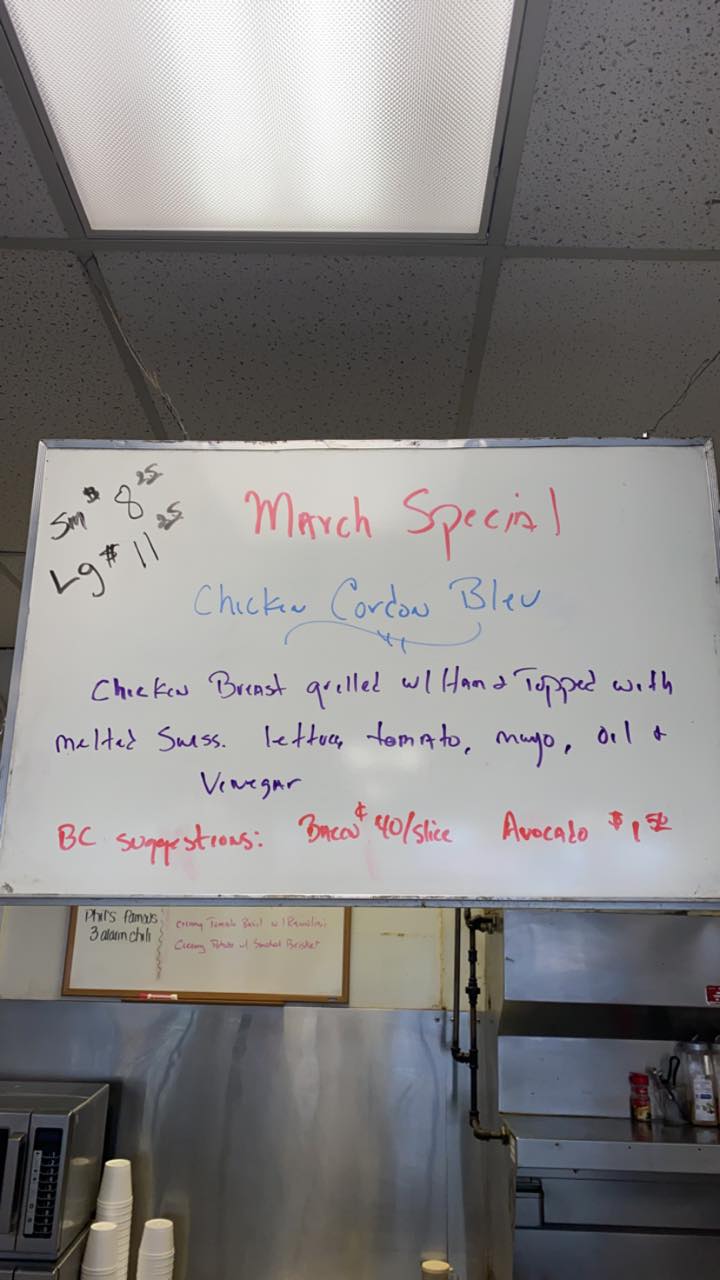 Sm $8.25
Lg $11.25
March Special
Chicken Cordon Bleu
Chicken Breast grilled w/ Ham & Topped with
melted Swiss. lettuce, tomato, mayo, oil &
Vinegar
BC suggestions: Bacon ¢40/slice Avocado $1.50
Phil's famous
3 alarm chili
Creamy Tomato Basil w/
Creamy Potato w/ Smoked Brisket